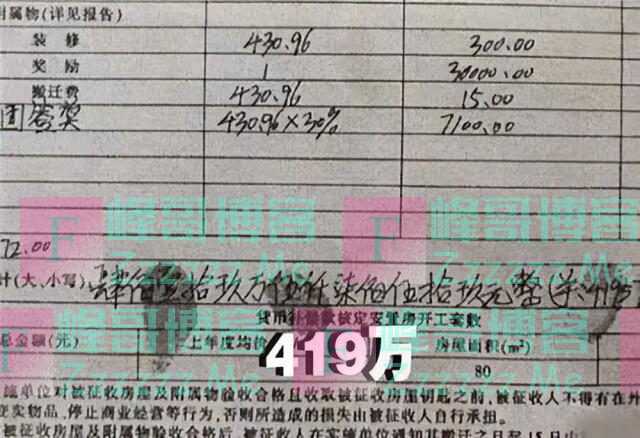 附属物(详见报告)
装修 430.96 300.00
奖励 1 30000.00
搬迁费 430.96 15.00
团签奖 430.96×30% 7100.00
F 峰哥博客 F 峰哥博客
Zzzzz.Me Zzzzz.Me
72.00
计(大、小写) 肆佰壹拾玖万伍仟柒佰伍拾玖元整
货币补偿款核定安置房开工套数
总金额(元) 上年度均价 房屋面积(m²)
419万
80
施单位对被征收房屋及附属物验收合格且收取被征收房屋钥匙之前,被征收人不得有在外
变卖物品、停止商业经营等行为,否则所造成的损失由被征收人自行承担。
被征收房屋及附属物验收合格后,被征收人在实施单位通知其搬迁之日起15日内